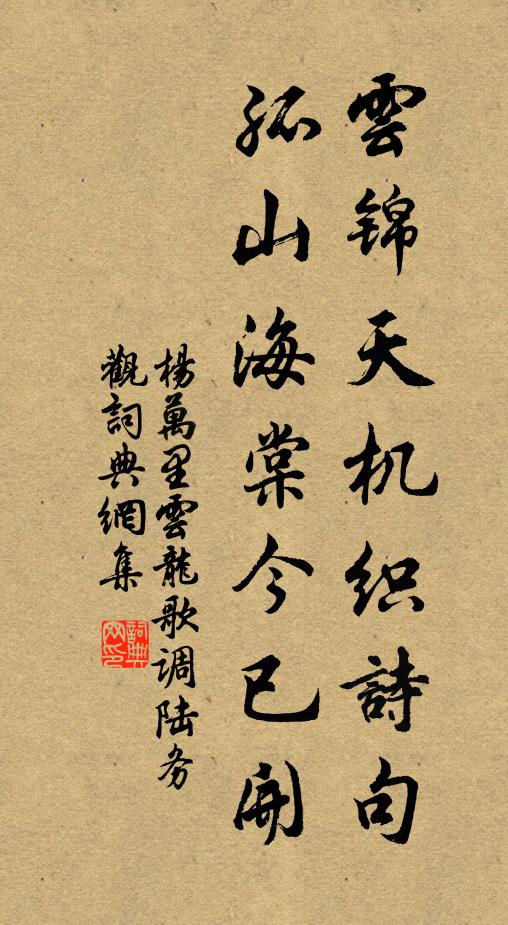 雲锦天机织詩句
孤山海棠今已開
楊萬里雲龍歌调陆务
觀詞典網集
詞典网印